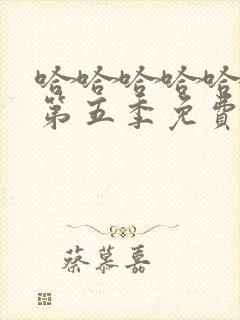 哈哈哈哈哈
第五季免費
蔡慕嘉